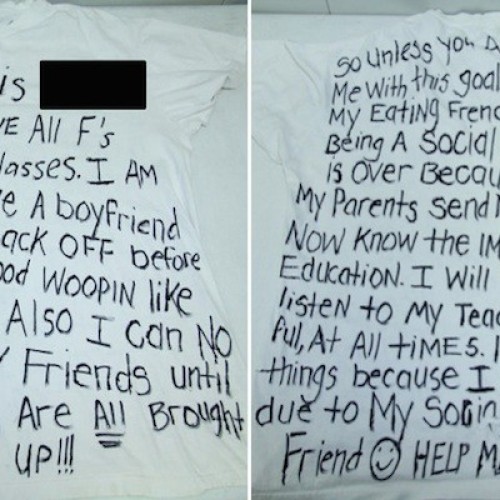 is
VE All F's
lasses. I AM
e A boyfriend
ack OFF before
ood WOOPIN like
Also I can NO
Y Friends until
Are All Brought
UP!!!
So Unless you
Me With this goal
My EatiNg Frenc
Being A Social
is Over Becau
My Parents send
NOW Know the IM
EducatioN. I Will
listeN to My Teac
ful, At All tiMES. I
things because I
due to My Socia
Friend ☺ HELP M